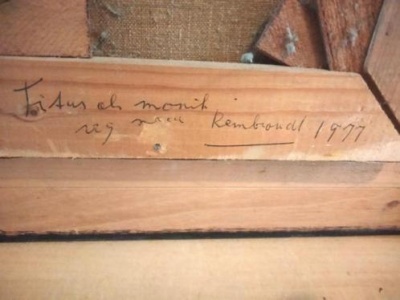 Titus als monik
naar Rembrandt 1977